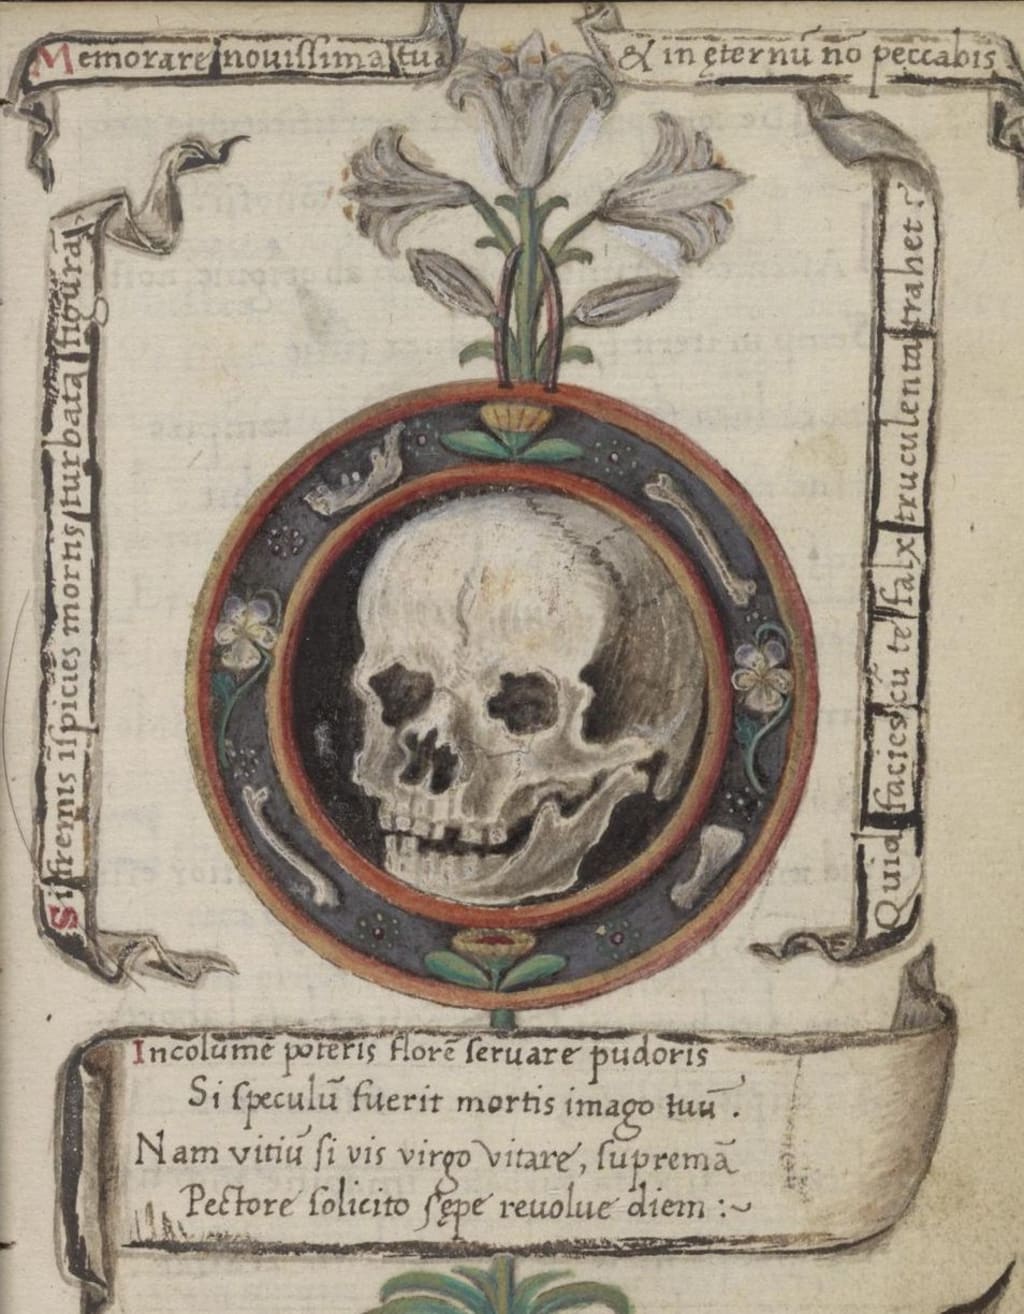 Memorare nouiſſima tua & in ęternū nō peccabis
Si fremis īſpicies mortis turbata figurā
Quid facies cū te falx truculenta trahet?
Incolume poteris florē ſeruare pudoris
Si ſpeculū fuerit mortis imago tuū.
Nam vitiū ſi vis virgo vitare, ſupremā
Pectore ſolicito ſępe reuolue diem :~